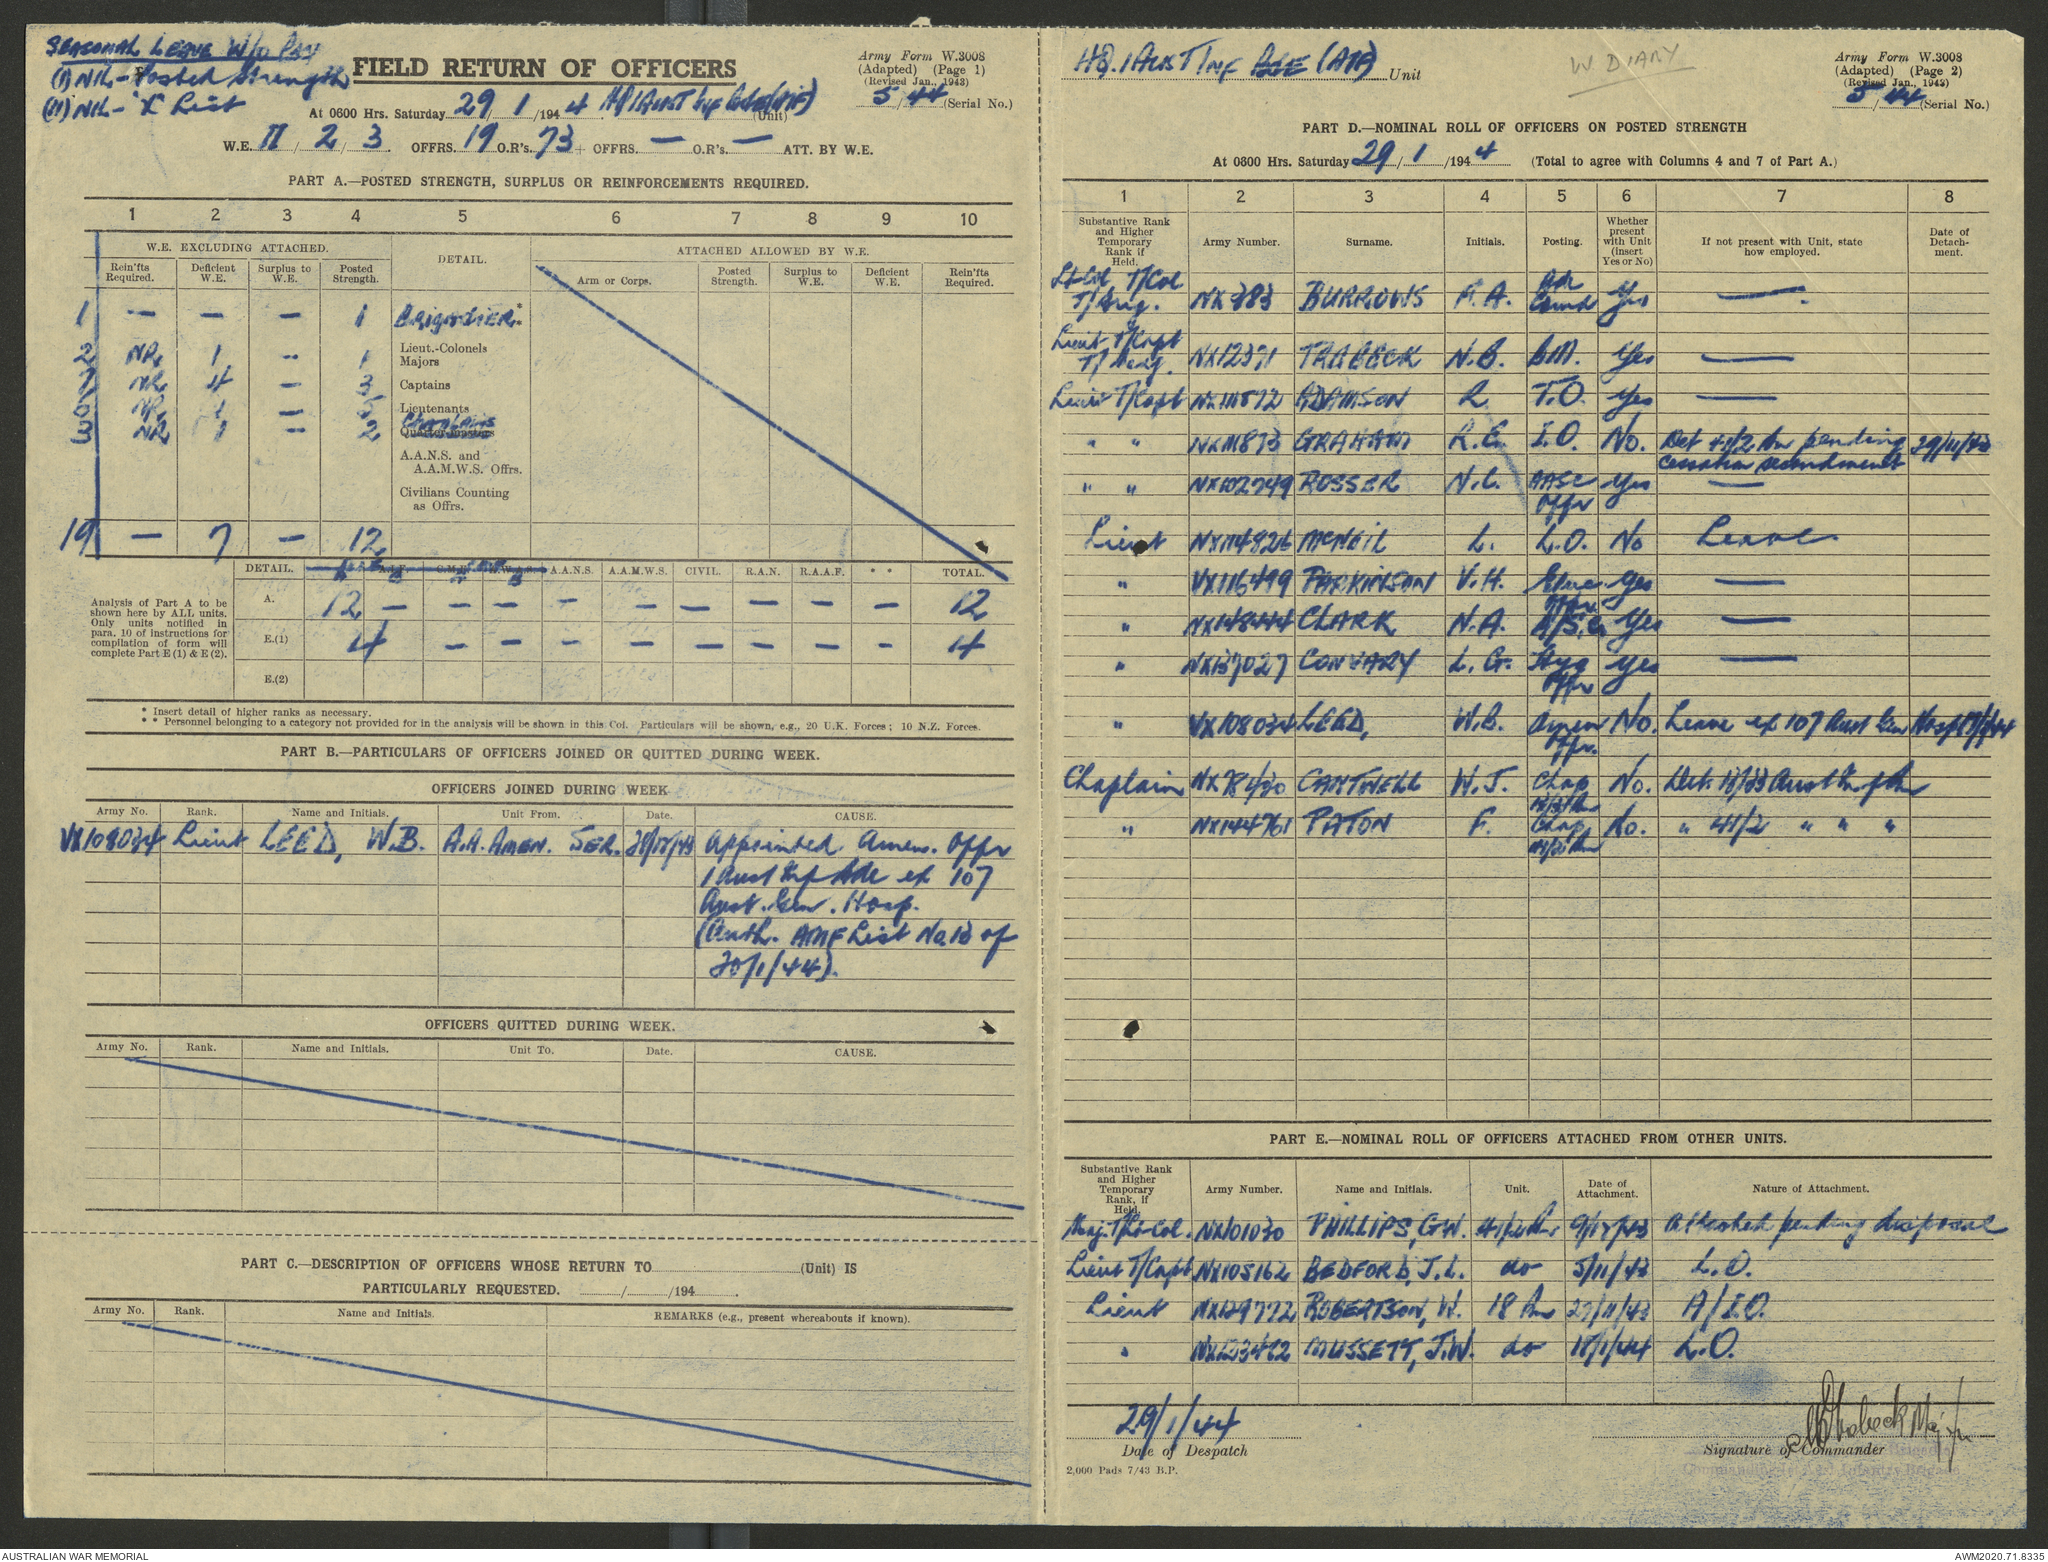 SEASONAL LEAVE W/O PAY
(I) NIL - Posted Strength
(II) NIL - 'X' List
FIELD RETURN OF OFFICERS
Army Form W.3008
(Adapted) (Page 1)
(Revised Jan., 1943)
5/44 (Serial No.)
At 0600 Hrs. Saturday 29/1/1944. HQ 1 Aust Inf Bde (AIF) (Unit)
W.E. II/2/3. OFFRS. 19 O.R's. 73 + OFFRS. — O.R's. — ATT. BY W.E.
PART A.—POSTED STRENGTH, SURPLUS OR REINFORCEMENTS REQUIRED.
1 2 3 4 5 6 7 8 9 10
W.E. EXCLUDING ATTACHED. DETAIL. ATTACHED ALLOWED BY W.E.
Rein'fts Required. Deficient W.E. Surplus to W.E. Posted Strength. Arm or Corps. Posted Strength. Surplus to W.E. Deficient W.E. Rein'fts Required.
1 — — — 1 BRIGADIER*
Lieut.-Colonels
2 NR 1 — 1 Majors
7 NR 4 — 3 Captains
NR — Lieutenants
3 NR 1 — 2 CHAPLAINS
Quarter-masters
A.A.N.S. and
A.A.M.W.S. Offrs.
Civilians Counting
as Offrs.
19 — 7 — 12
DETAIL. A.I.F. C.M.F. A.W.A.S. A.A.N.S. A.A.M.W.S. CIVIL. R.A.N. R.A.A.F. * * TOTAL.
Analysis of Part A to be shown here by ALL units. Only units notified in para. 10 of instructions for compilation of form will complete Part E (1) & E (2).
A. 12 — — — — — — — — — 12
E.(1) 4 — — — — — — — — 4
E.(2)
* Insert detail of higher ranks as necessary.
* * Personnel belonging to a category not provided for in the analysis will be shown in this Col. Particulars will be shown, e.g., 20 U.K. Forces ; 10 N.Z. Forces.
PART B.—PARTICULARS OF OFFICERS JOINED OR QUITTED DURING WEEK.
OFFICERS JOINED DURING WEEK
Army No. Rank. Name and Initials. Unit From. Date. CAUSE.
VX108034 Lieut LEED, W.B. A.A. AMEN. SER. Appointed Amen. Offr
1 Aust Inf Bde ex 107
Aust. Gen. Hosp.
(Auth. AMF List No. 13 of
20/1/44).
OFFICERS QUITTED DURING WEEK.
Army No. Rank. Name and Initials. Unit To. Date. CAUSE.
PART C.—DESCRIPTION OF OFFICERS WHOSE RETURN TO (Unit) IS
PARTICULARLY REQUESTED. / /194 .
Army No. Rank. Name and Initials. REMARKS (e.g., present whereabouts if known).
HQ. 1 AUST INF BDE (AIF) Unit
W DIARY
Army Form W.3008
(Adapted) (Page 2)
(Revised Jan., 1943)
5/44 (Serial No.)
PART D.—NOMINAL ROLL OF OFFICERS ON POSTED STRENGTH
At 0600 Hrs. Saturday 29/1/1944 (Total to agree with Columns 4 and 7 of Part A.)
1 2 3 4 5 6 7 8
Substantive Rank and Higher Temporary Rank if Held. Army Number. Surname. Initials. Posting. Whether present with Unit (Insert Yes or No) If not present with Unit, state how employed. Date of Detachment.
Lt-Col T/Col T/Brig. NX383 BURROWS F.A. Bde Comd Yes —
Lieut T/Capt T/Maj. NX12371 TRABECK N.B. BM. Yes —
Lieut T/Capt ADAMSON R. T.O. Yes —
" " GRAHAM R.C. I.O. No. Det 41/2 Bn pending cessation secondment 29/11/43
" " NX102749 ROSSER N.C. AASC Offr Yes —
Lieut NX114826 McNEIL L. L.O. No Leave
" VX116499 PARKINSON V.H. Yes —
" NX148444 CLARK N.A. Yes —
" NX137027 CONVARY L.G. Hyg Offr Yes —
" VX108034 LEED, W.B. Amen Offr. No. Leave ex 107 Aust Gen Hosp
Chaplain CANTWELL W.J. Chap No. Det 13/33 Aust Inf Bn
" NX144761 PATON F. Chap No. " 41/2 " " "
PART E.—NOMINAL ROLL OF OFFICERS ATTACHED FROM OTHER UNITS.
Substantive Rank and Higher Temporary Rank, if Held. Army Number. Name and Initials. Unit. Date of Attachment. Nature of Attachment.
Maj. T/Lt-Col. NX101030 PHILLIPS, G.W. 41/2 Bn 9/12/43 Attached pending disposal
Lieut T/Capt NX105162 BEDFORD, J.L. do 5/11/43 L.O.
Lieut NX129772 ROBERTSON, W. 18 Bn 27/11/43 A/I.O.
" NX123472 MUSSETT, J.W. do 18/1/44 L.O.
29/1/44
Date of Despatch
Signature of Commander
2,000 Pads 7/43 B.P.
AUSTRALIAN WAR MEMORIAL
AWM2020.71.8335